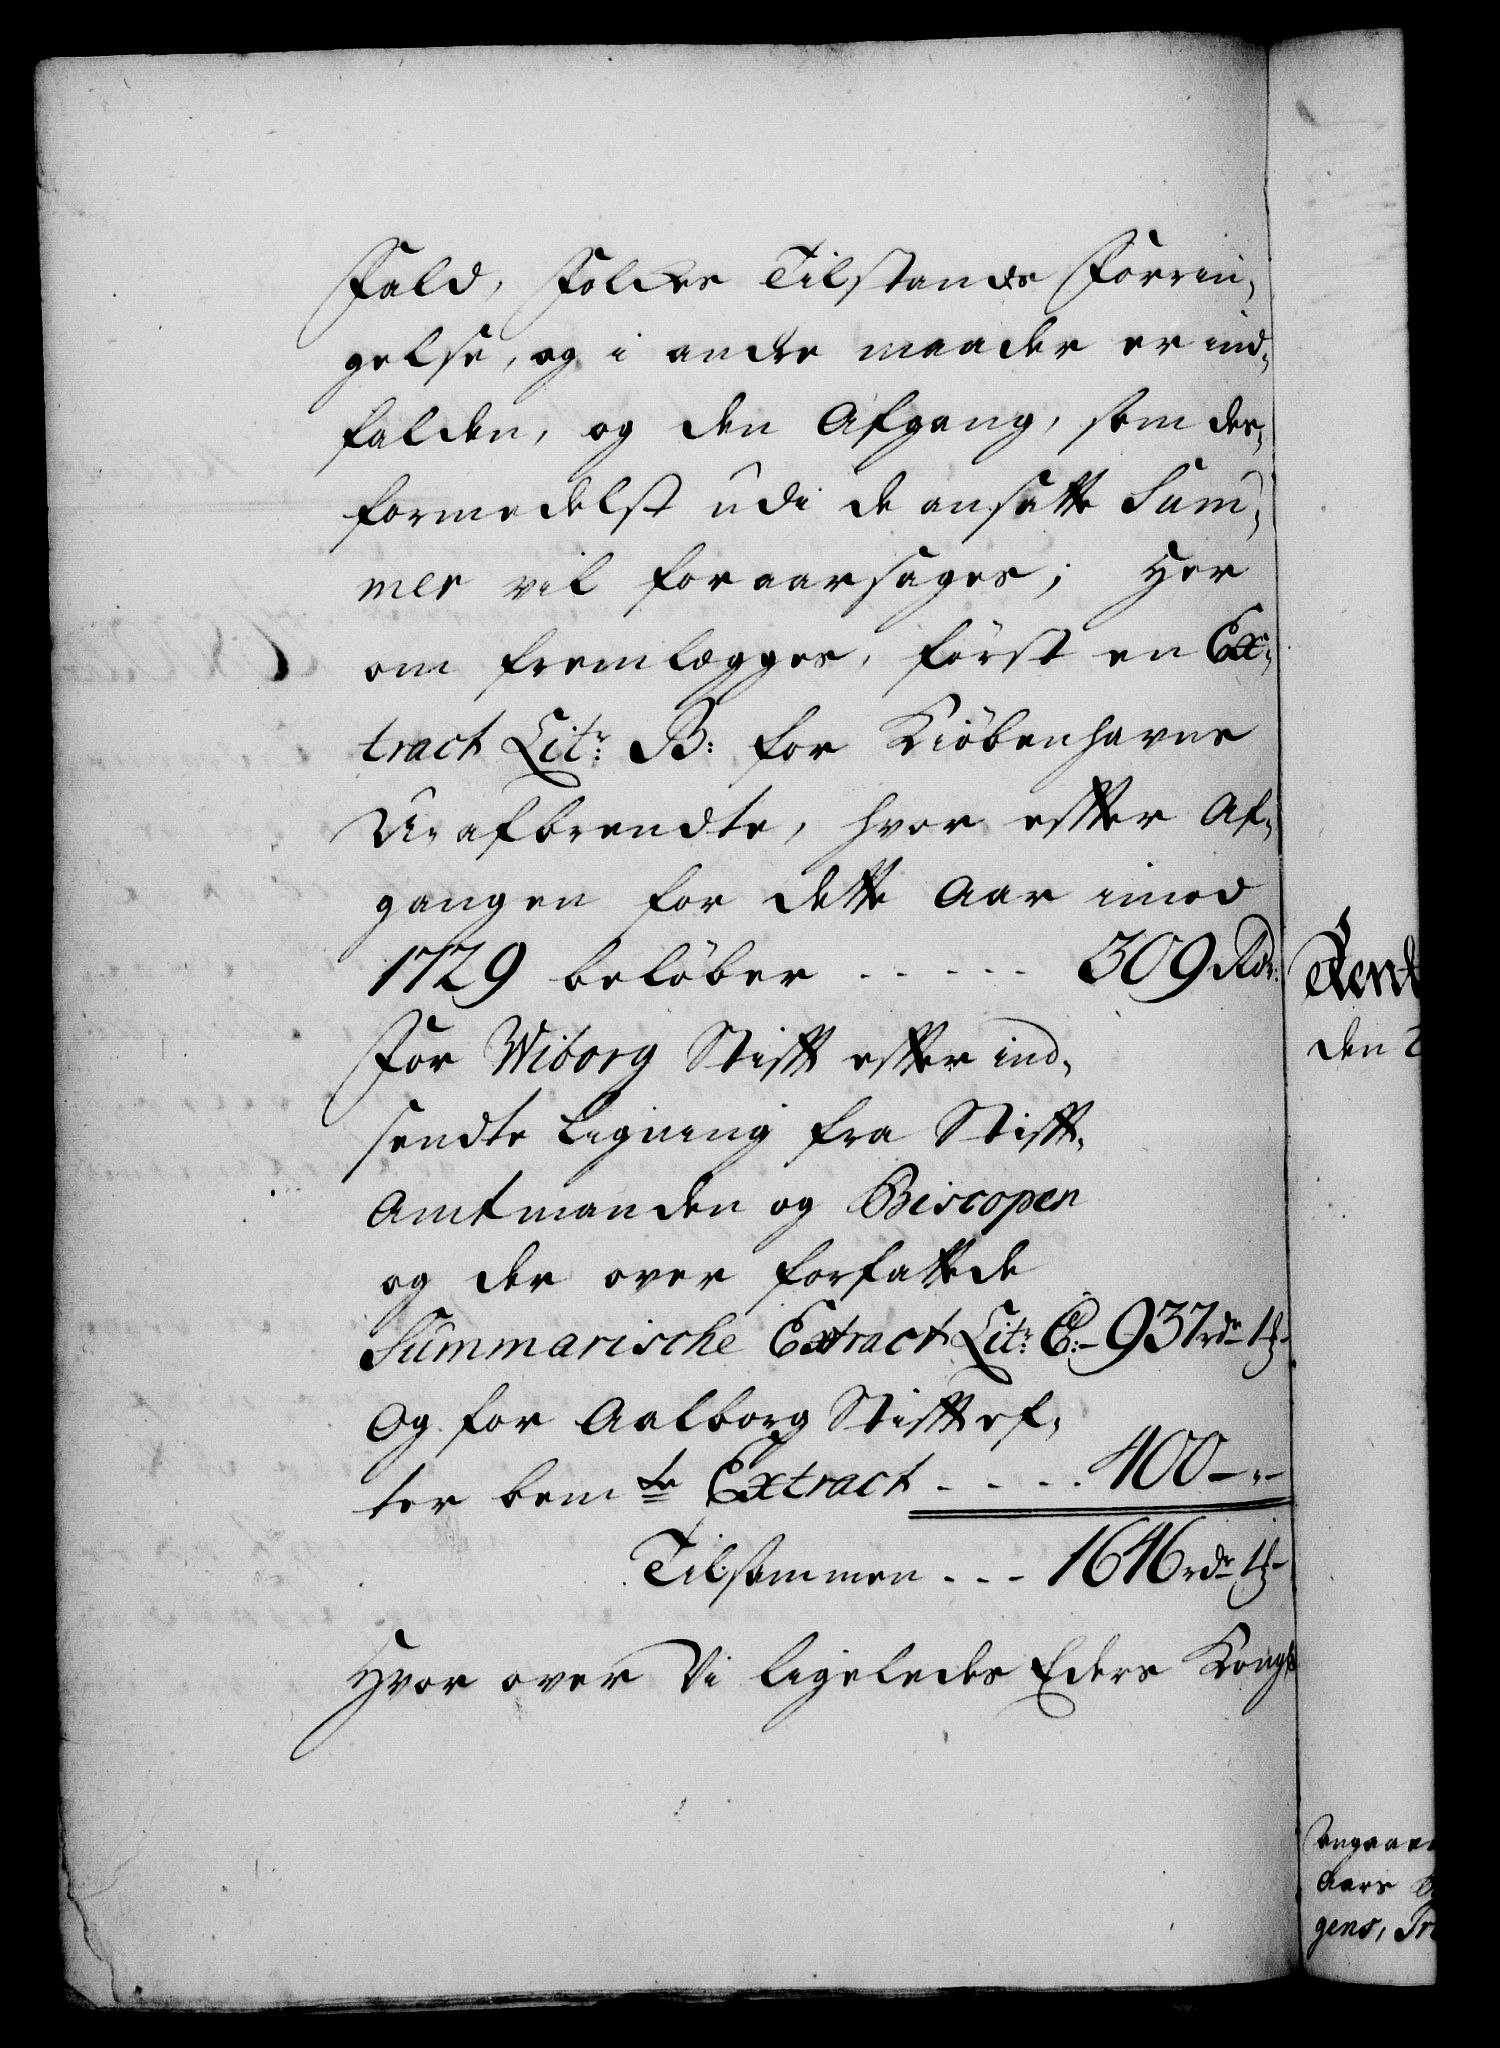 Fald, Folkes Tilstands Forrin,
gelse, og i andre maader er ind,
falden, og den Afgang, som der,
formedelst udi de ansatte Sum,
mer vil foraarsages; Her
om fremlægges, først en Ex,
tract Litr: B: for Kiøbenhavns
U,afbrendte, hvor efter Af,
gangen for dette Aar imod
1729 beløber - - - - - 309 Rdr:
For Wiborg Stift efter ind,
sendte Ligning fra Stift,
Amtmanden og Biscopen
og der over forfattede
Summarische Extract Litr: C:- 937 rdr 1 ß
Og for Aalborg Stift ef,
ter bemte Extract - - - - 400 - „ -
Tilsammen - - - 1646 rdr 1 ß
Hvor over Vi ligeledes Eders Kongl
den
Aars
gens,